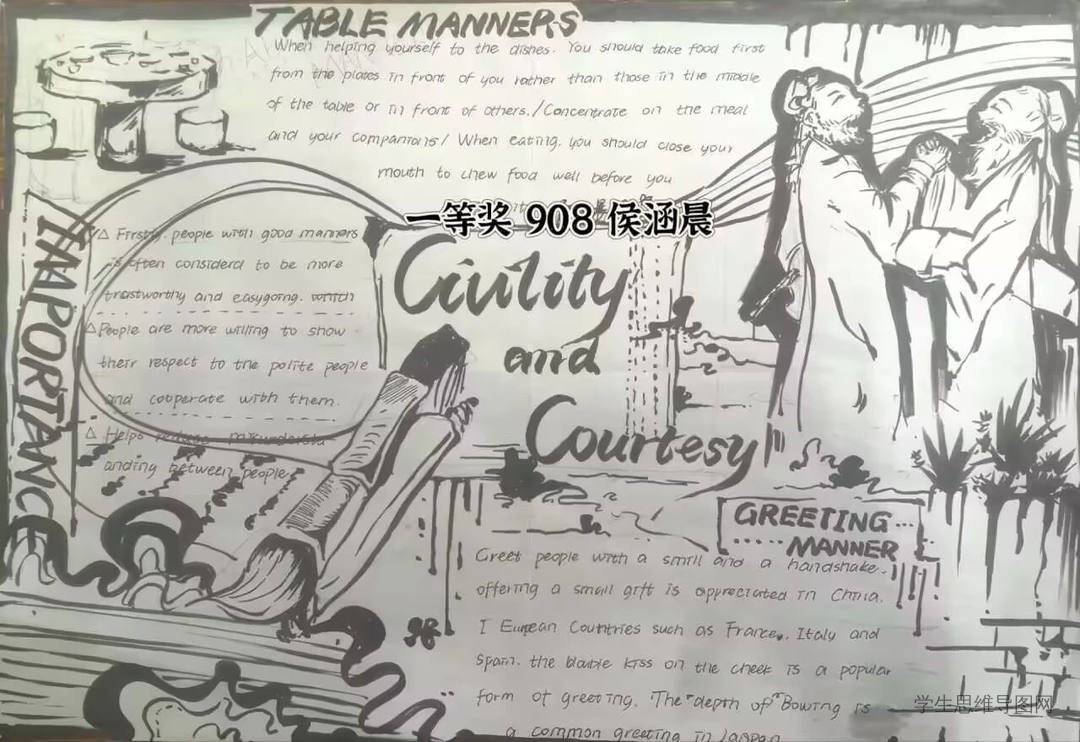 TABLE MANNERS
When helping yourself to the dishes. You should take food first
from the plates in front of you rather than those in the middle
of the table or in front of others./Concentrate on the meal
and your companions/ When eating. you should close your
mouth to chew food well before you
一等奖 908 侯涵晨
IMPORTANCE
△ Firstly. people with good manners
is often considerd to be more
trastworthy and easygoing. which
△People are more willing to show
their respect to the polite people
and cooperate with them.
△ Helps reduce misundersta
anding between people
Civility
and
Courtesy
GREETING...
.....MANNER
Greet people with a smill and a handshake.
offering a small gift is appreciated in China.
I Eurpean Countries such as France, Italy and
Spain. the kiss on the cheek is a popular
form of greeting. The "depth of" Bowing is
a common greeting in Japan
学生思维导图网